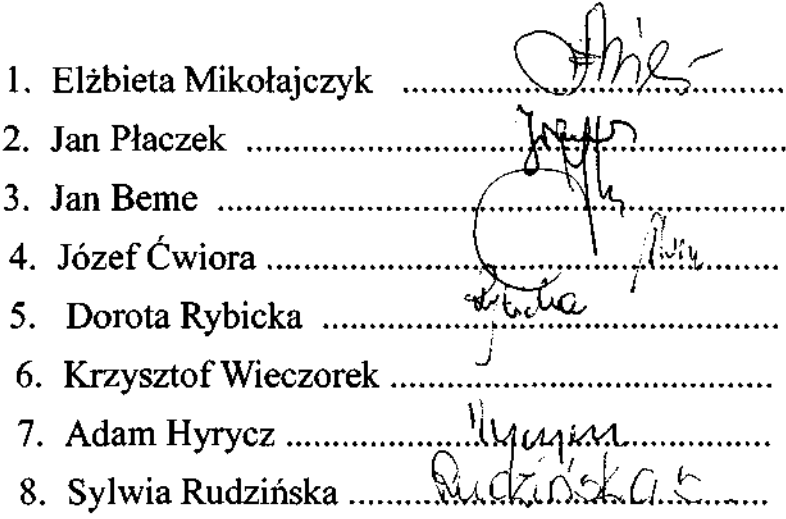 1. Elżbieta Mikołajczyk ........................................
2. Jan Płaczek ........................................................
3. Jan Beme ...........................................................
4. Józef Ćwiora .....................................................
5. Dorota Rybicka ...............................................
6. Krzysztof Wieczorek .......................................
7. Adam Hyrycz ..................................................
8. Sylwia Rudzińska ........ Rudzińska S ........